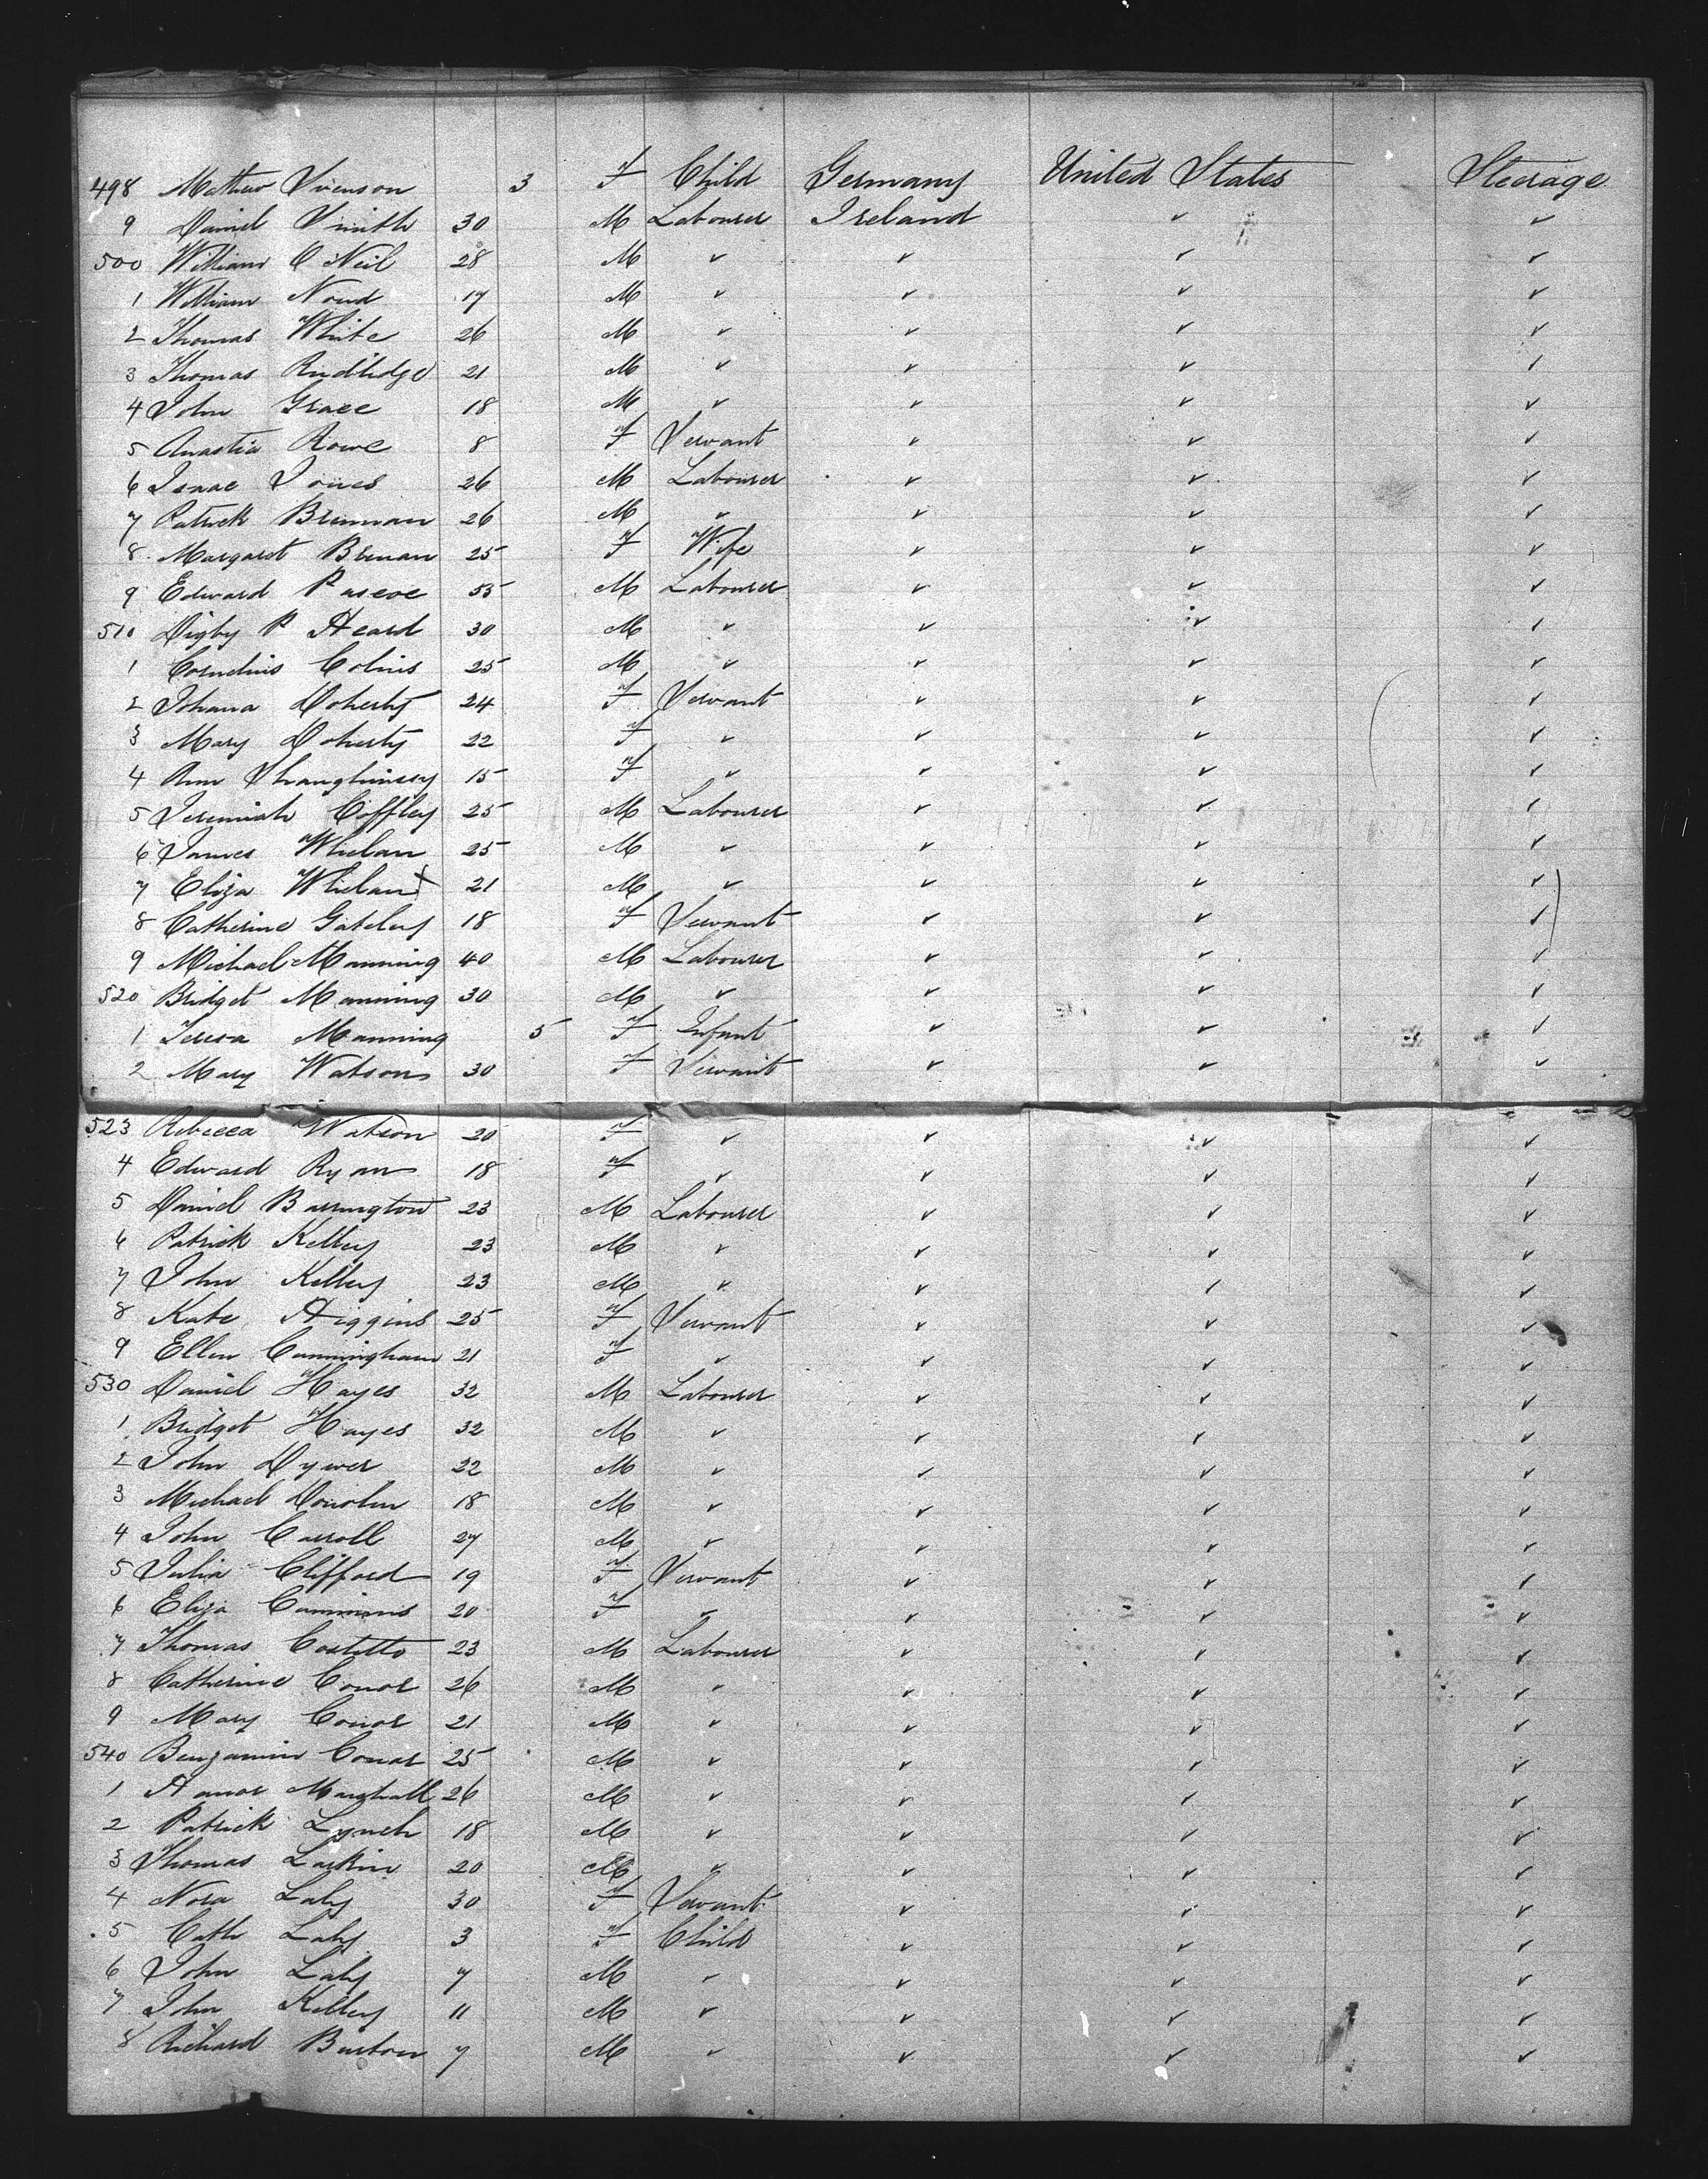 498 Mathew Swenson 3 F Child Germany United States Steerage
9 Daniel Smith 30 M Labourer Ireland ✓ ✓
500 William O Neil 28 M ✓ ✓ ✓ ✓
1 William 17 M ✓ ✓ ✓ ✓
2 Thomas White 26 M ✓ ✓ ✓ ✓
3 Thomas Rudlidge 21 M ✓ ✓ ✓ ✓
4 John Grace 18 M ✓ ✓ ✓ ✓
5 Anastia Rowe 8 F Servant ✓ ✓ ✓
6 Isaac Jones 26 M Labourer ✓ ✓ ✓
7 Patrick Brennan 26 M ✓ ✓ ✓ ✓
8 Margaret Brenan 25 F Wife ✓ ✓ ✓
9 Edward Pascoe 55 M Labourer ✓ ✓ ✓
510 Digby P Heard 30 M ✓ ✓ ✓ ✓
1 Cornelius Colins 25 M ✓ ✓ ✓ ✓
2 Johana Doherty 24 F Servant ✓ ✓ ✓
3 Mary Doherty 22 F ✓ ✓ ✓ ✓
4 Ann Shaughnissy 15 F ✓ ✓ ✓ ✓
5 Jeremiah Coffley 25 M Labourer ✓ ✓ ✓
6 James Whelan 25 M ✓ ✓ ✓ ✓
7 Eliza Whelan x 21 M ✓ ✓ ✓ ✓
8 Catherine Gately 18 F Servant ✓ ✓ ✓
9 Michael Manning 40 M Labourer ✓ ✓ ✓
520 Bridget Manning 30 M ✓ ✓ ✓ ✓
1 Teresa Manning 5 F Infant ✓ ✓ ✓
2 Mary Watson 30 F Servant ✓ ✓ ✓
523 Rebecca Watson 20 F ✓ ✓ ✓ ✓
4 Edward Ryan 18 F ✓ ✓ ✓ ✓
5 Daniel Barrington 23 M Labourer ✓ ✓ ✓
6 Patrick Kelley 23 M ✓ ✓ ✓ ✓
7 John Kelley 23 M ✓ ✓ ✓ ✓
8 Kate Higgins 25 F Servant ✓ ✓ ✓
9 Ellen Cunningham 21 F ✓ ✓ ✓ ✓
530 Daniel Hayes 32 M Labourer ✓ ✓ ✓
1 Bridget Hayes 32 M ✓ ✓ ✓ ✓
2 John Dywer 22 M ✓ ✓ ✓ ✓
3 Michael 18 M ✓ ✓ ✓ ✓
4 John Carroll 27 M ✓ ✓ ✓ ✓
5 Julia Clifford 19 F Servant ✓ ✓ ✓
6 Eliza Cummins 20 F ✓ ✓ ✓ ✓
7 Thomas Costetto 23 M Labourer ✓ ✓ ✓
8 Catherine Conor 26 M ✓ ✓ ✓ ✓
9 Mary Conor 21 M ✓ ✓ ✓ ✓
540 Benjamin Conor 25 M ✓ ✓ ✓ ✓
1 Marshall 26 M ✓ ✓ ✓ ✓
2 Patrick Lynch 18 M ✓ ✓ ✓ ✓
3 Thomas Larkin 20 M ✓ ✓ ✓ ✓
4 Nora Lahy 30 F Servant ✓ ✓ ✓
5 Cath Lahy 3 F Child ✓ ✓ ✓
6 John Lahy 7 M ✓ ✓ ✓ ✓
7 John Kelley 11 M ✓ ✓ ✓ ✓
8 Richard Burton 7 M ✓ ✓ ✓ ✓